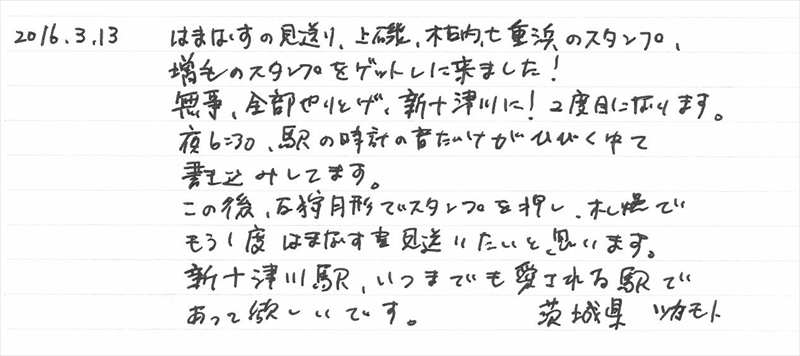 2016.3.13 はまなすの見送り、上磯、木古内、七重浜のスタンプ、
増毛のスタンプをゲットしに来ました!
無事、全部やりとげ、新十津川に! 2度目になります。
夜6:30、駅の時計の音だけがひびく中で
書き込みしてます。
この後、石狩月形でスタンプを押し、札幌で
もう1度はまなすを見送りたいと思います。
新十津川駅、いつまでも愛される駅で
あって欲しいです。 茨城県 ツカモト